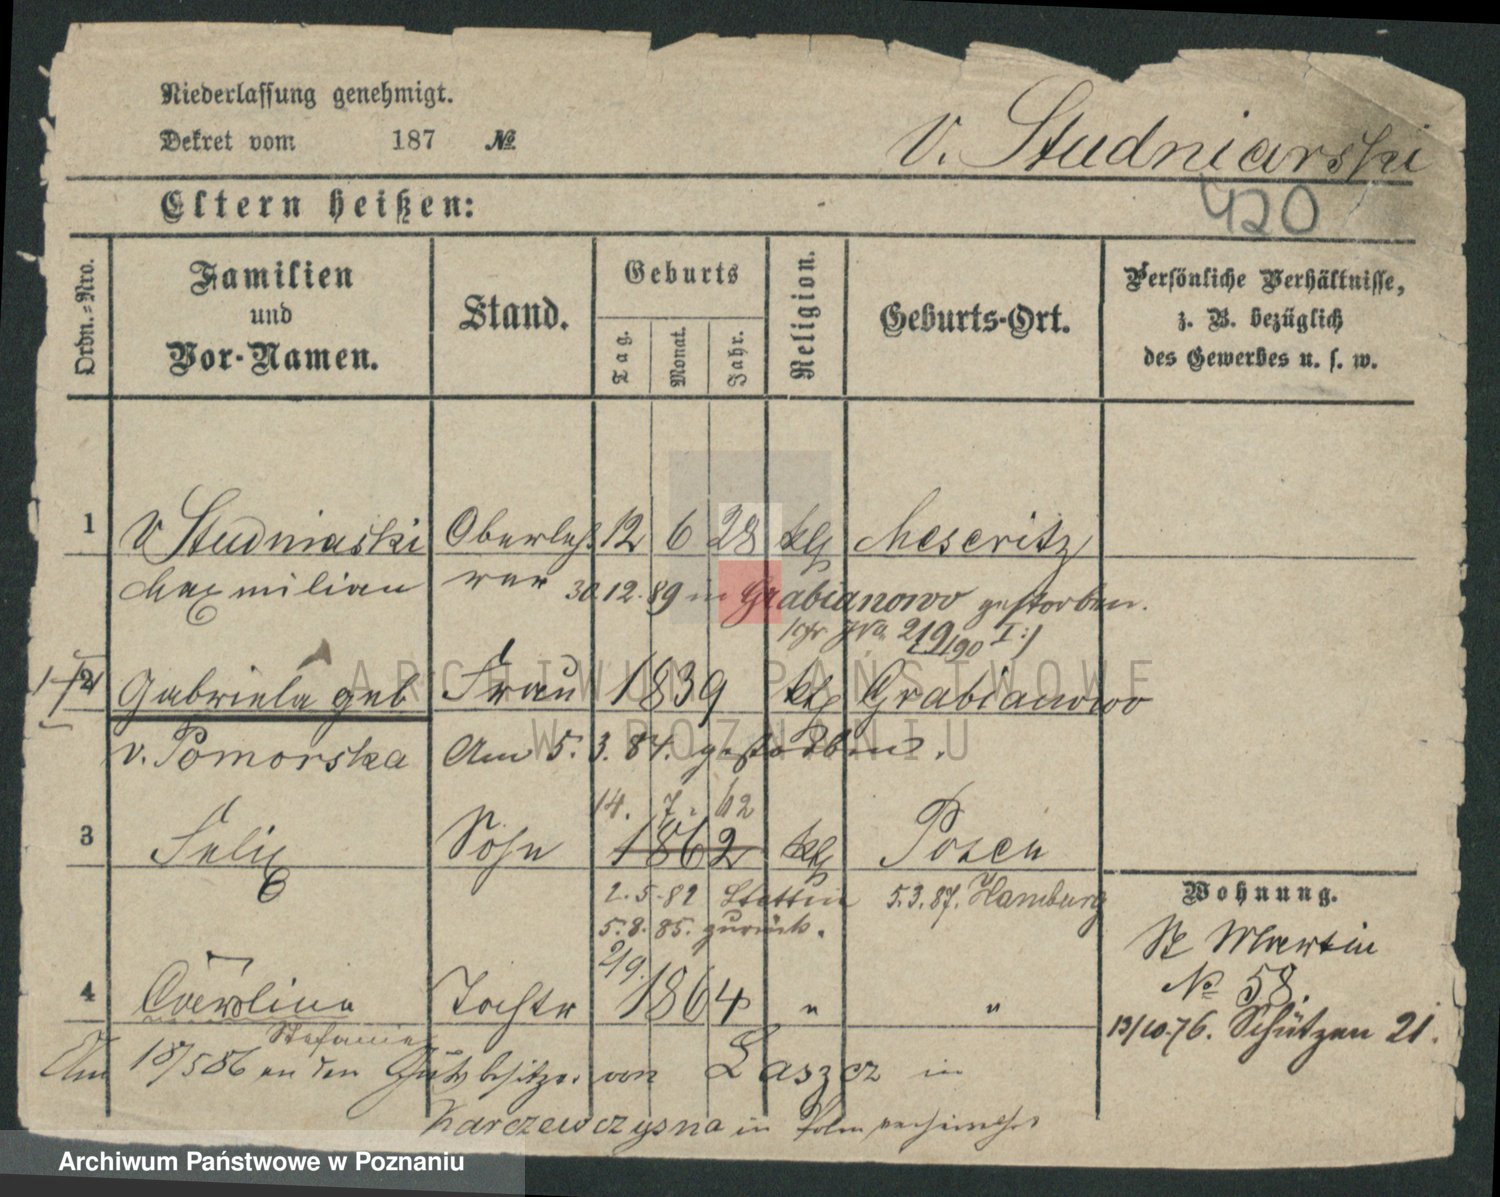 Niederlassung genehmigt.
Dekret vom 187 №
v. Studniarski
420
Eltern heißen:
Ordn.-Nro.
Familien
und
Vor-Namen.
Stand.
Geburts
Tag.
Monat.
Jahr.
Religion.
Geburts-Ort.
Persönliche Verhältnisse,
z. B. bezüglich
des Gewerbes u. s. w.
1 v Studniaski Oberleh. 12 6 28 kth Meseritz
Maxmilian rer 30.12.89 in Grabianowo gestorben.
219/90 I:/
2 Gabriela geb Frau 1839 kth Grabianowo
v. Pomorska Am 5.3.84. gestorben.
14. 7. 62
3 Felix Sohn 1862 kth Posen
2.5.82 Stettin 5.3.87. Hamburg
5.8.85. zurück.
Wohnung.
St Martin
№ 58.
13/10.76. Schützen 21.
2/9.
4 Carolina Tochtr 1864 " "
Stefanie
Am 18/5 86 an den Gutsbesitzer von Laszcz in
Karczewczysna in Polen
ARCHIWUM PAŃSTWOWE
W POZNANIU
Archiwum Państwowe w Poznaniu